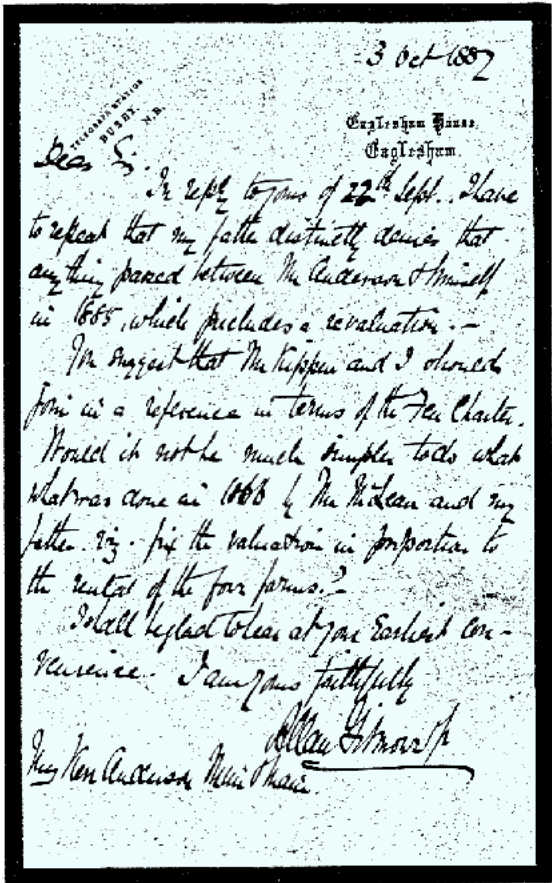 3 Oct 1887
TELEGRAPH STATION
BUSBY. N.B.
Eaglesham House,
Eaglesham.
Dear Sir.
In reply to yours of 22th Sept. I have
to repeat that my father distinctly denies that
anything passed between Mr Anderson & himself
in 1885, which precludes a revaluation. -
You suggest that Mr Kippen and I should
join in a reference in terms of the Feu Charter.
Would it not be much simpler to do what
what was done in 1868 by Mr McLean and my
father. viz. fix the valuation in proportion to
the rental of the four farms? -
I shall be glad to hear at your Earliest con-
venience. I am yours faithfully
Allan Gilmour Jr
Anderson